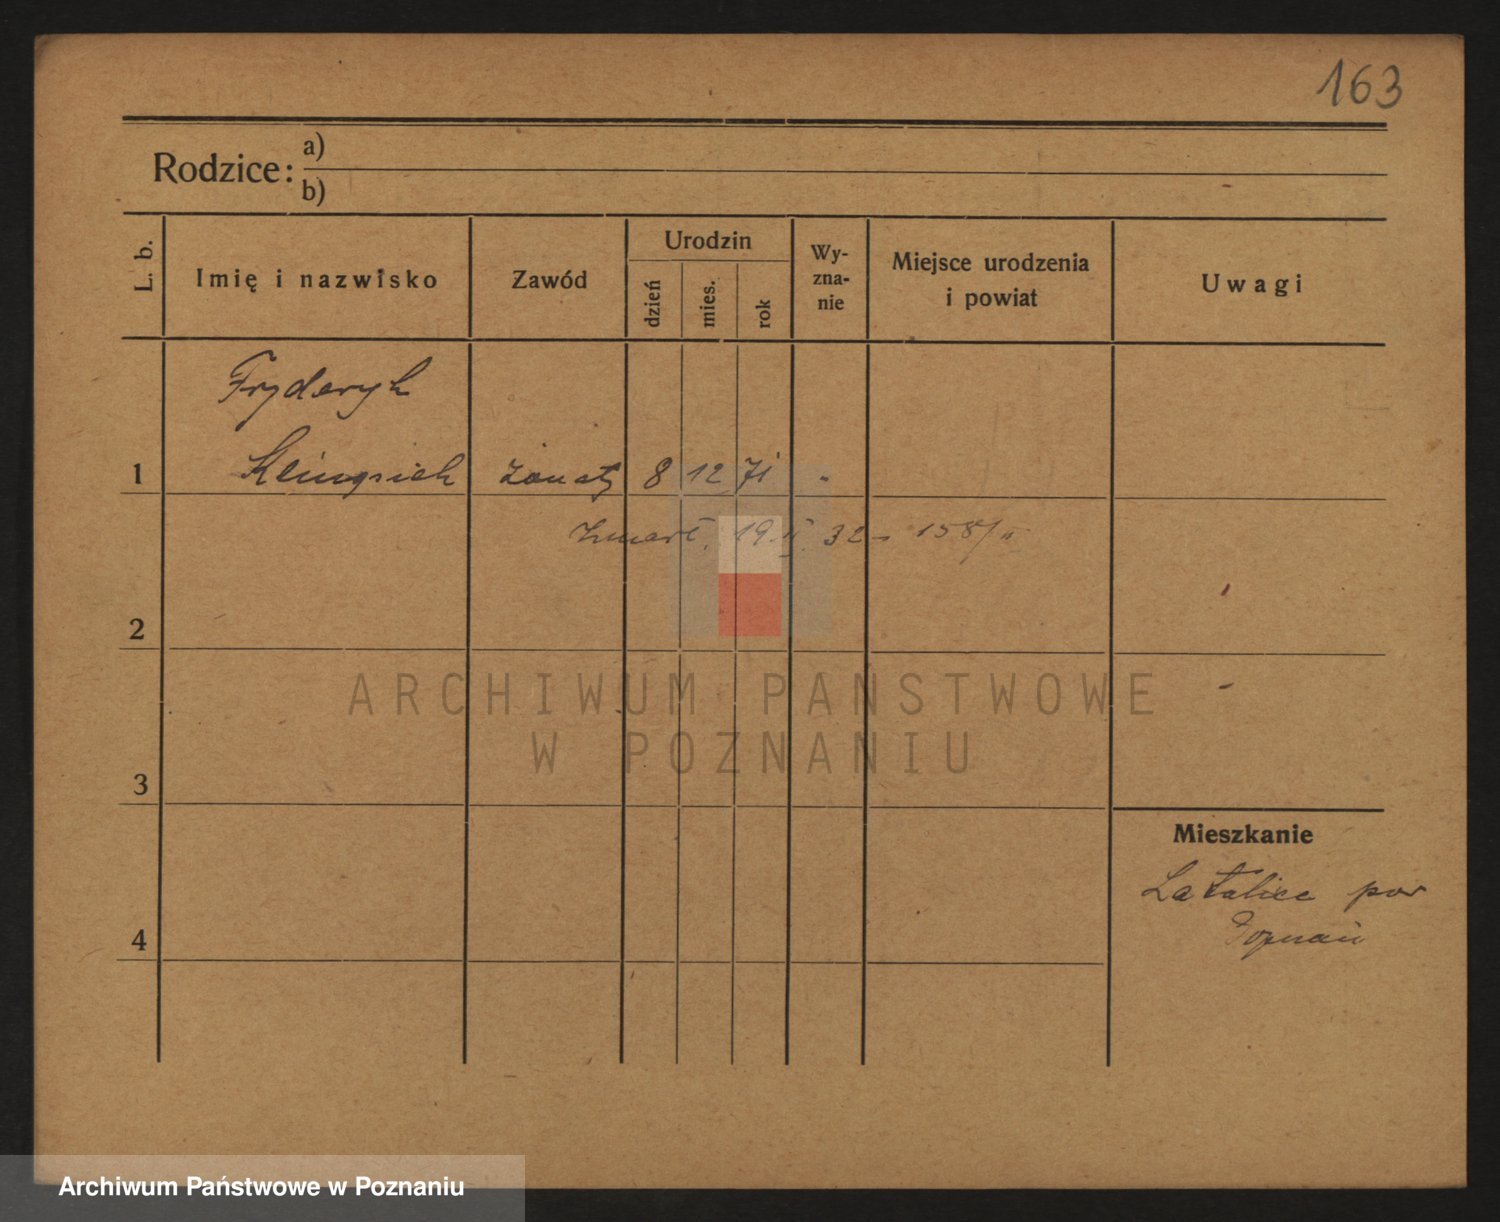 163
Rodzice:
a)
b)
L. b.
Imię i nazwisko
Zawód
Urodzin
dzień
mies.
rok
Wy-
zna-
nie
Miejsce urodzenia
i powiat
Uwagi
Fryderyk
1 żonaty 8 12 71 "
Zmarł. 19. II. 32 – 158/"
2
ARCHIWUM PAŃSTWOWE
W POZNANIU
3
Mieszkanie
Latalice pow
Poznań
4
Archiwum Państwowe w Poznaniu